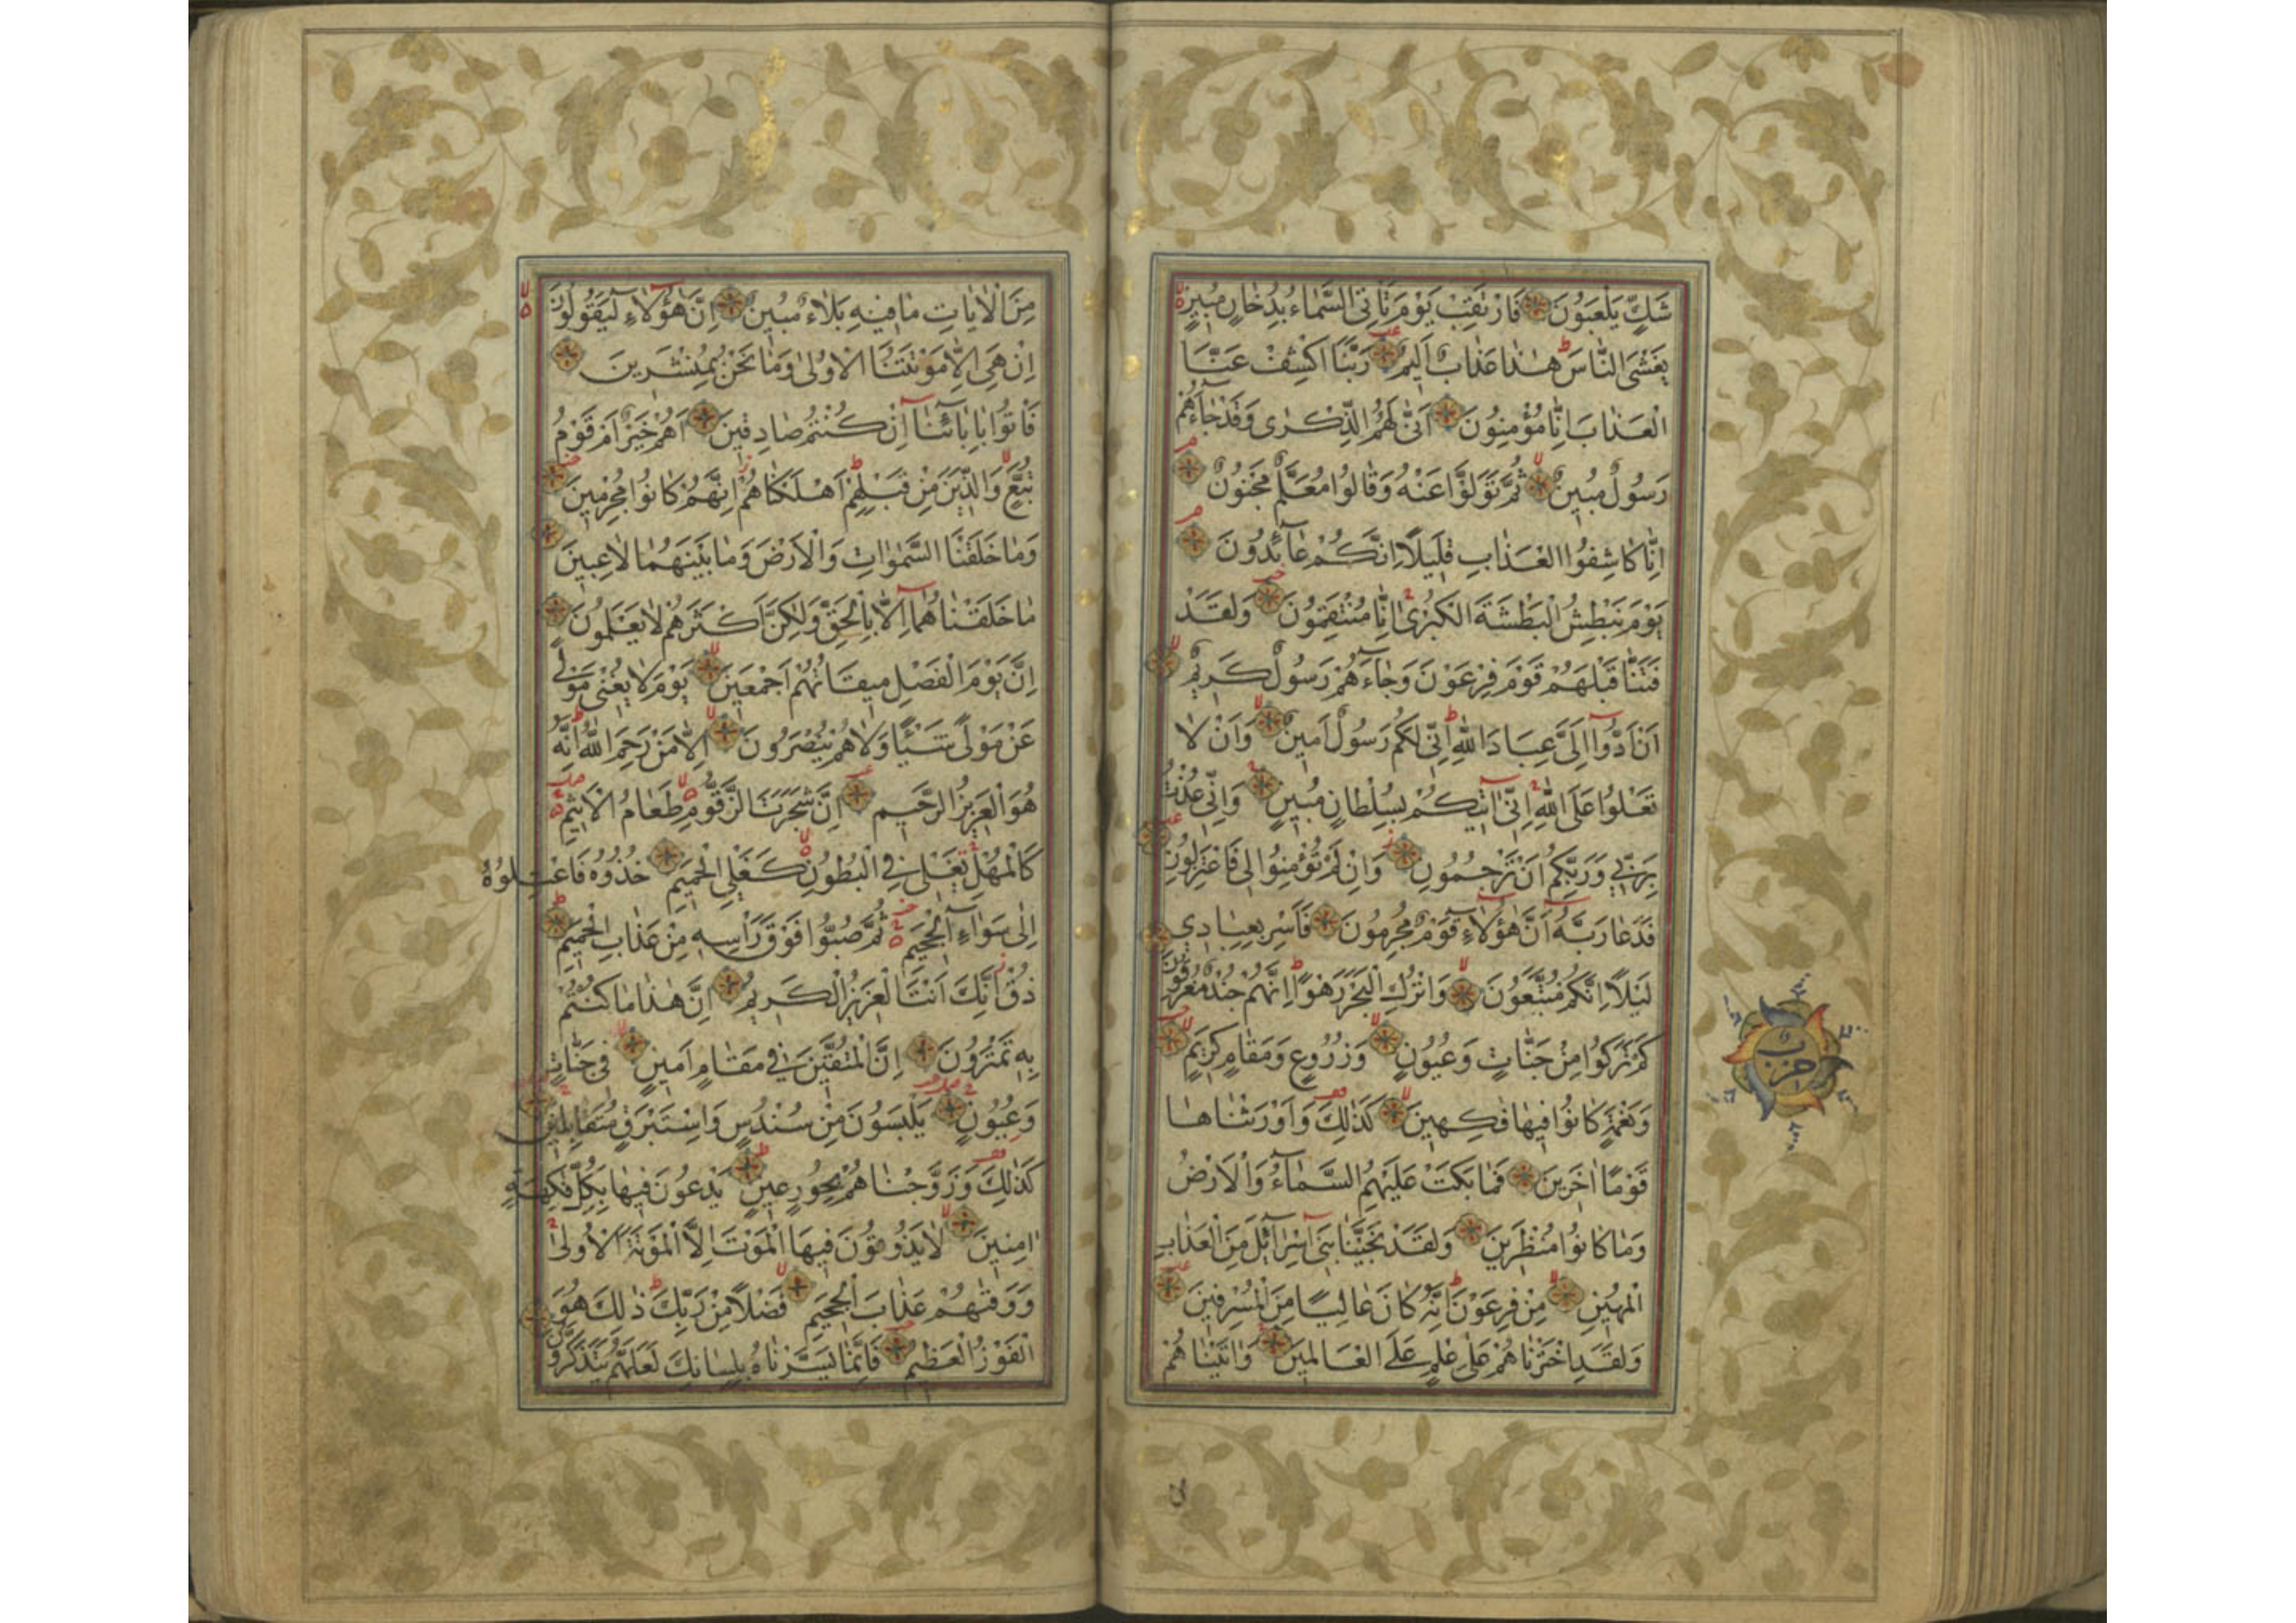 شَكٍّ يَلْعَبُونَ فَارْتَقِبْ يَوْمَ تَأْتِى السَّمَاءُ بِدُخَانٍ مُبِينٍ
يَغْشَى النَّاسَ هٰذَا عَذَابٌ اَلِيمٌ رَبَّنَا اكْشِفْ عَنَّا
الْعَذَابَ اِنَّا مُؤْمِنُونَ اَنّٰى لَهُمُ الذِّكْرٰى وَقَدْ جَاءَهُمْ
رَسُولٌ مُبِينٌ ثُمَّ تَوَلَّوْا عَنْهُ وَقَالُوا مُعَلَّمٌ مَجْنُونٌ
اِنَّا كَاشِفُوا الْعَذَابِ قَلِيلًا اِنَّكُمْ عَائِدُونَ
يَوْمَ نَبْطِشُ الْبَطْشَةَ الْكُبْرٰى اِنَّا مُنْتَقِمُونَ وَلَقَدْ
فَتَنَّا قَبْلَهُمْ قَوْمَ فِرْعَوْنَ وَجَاءَهُمْ رَسُولٌ كَرِيمٌ
اَنْ اَدُّوا اِلَيَّ عِبَادَ اللّٰهِ اِنِّى لَكُمْ رَسُولٌ اَمِينٌ وَاَنْ لَا
تَعْلُوا عَلَى اللّٰهِ اِنِّى اٰتِيكُمْ بِسُلْطَانٍ مُبِينٍ وَاِنِّى عُذْتُ
بِرَبِّى وَرَبِّكُمْ اَنْ تَرْجُمُونِ وَاِنْ لَمْ تُؤْمِنُوا لِى فَاعْتَزِلُونِ
فَدَعَا رَبَّهُ اَنَّ هٰؤُلَاءِ قَوْمٌ مُجْرِمُونَ فَاَسْرِ بِعِبَادِى
لَيْلًا اِنَّكُمْ مُتَّبَعُونَ وَاتْرُكِ الْبَحْرَ رَهْوًا اِنَّهُمْ جُنْدٌ مُغْرَقُونَ
كَمْ تَرَكُوا مِنْ جَنَّاتٍ وَعُيُونٍ وَزُرُوعٍ وَمَقَامٍ كَرِيمٍ
وَنَعْمَةٍ كَانُوا فِيهَا فَكِهِينَ كَذٰلِكَ وَاَوْرَثْنَاهَا
قَوْمًا اٰخَرِينَ فَمَا بَكَتْ عَلَيْهِمُ السَّمَاءُ وَالْاَرْضُ
وَمَا كَانُوا مُنْظَرِينَ وَلَقَدْ نَجَّيْنَا بَنِى اِسْرَائِلَ مِنَ الْعَذَابِ
الْمُهِينِ مِنْ فِرْعَوْنَ اِنَّهُ كَانَ عَالِيًا مِنَ الْمُسْرِفِينَ
وَلَقَدِ اخْتَرْنَاهُمْ عَلٰى عِلْمٍ عَلَى الْعَالَمِينَ وَاٰتَيْنَاهُمْ
حزب
مِنَ الْاٰيَاتِ مَا فِيهِ بَلَاءٌ مُبِينٌ اِنَّ هٰؤُلَاءِ لَيَقُولُونَ
اِنْ هِىَ اِلَّا مَوْتَتُنَا الْاُولٰى وَمَا نَحْنُ بِمُنْشَرِينَ
فَاْتُوا بِاٰبَائِنَا اِنْ كُنْتُمْ صَادِقِينَ اَهُمْ خَيْرٌ اَمْ قَوْمُ
تُبَّعٍ وَالَّذِينَ مِنْ قَبْلِهِمْ اَهْلَكْنَاهُمْ اِنَّهُمْ كَانُوا مُجْرِمِينَ
وَمَا خَلَقْنَا السَّمٰوَاتِ وَالْاَرْضَ وَمَا بَيْنَهُمَا لَاعِبِينَ
مَا خَلَقْنَاهُمَا اِلَّا بِالْحَقِّ وَلٰكِنَّ اَكْثَرَهُمْ لَا يَعْلَمُونَ
اِنَّ يَوْمَ الْفَصْلِ مِيقَاتُهُمْ اَجْمَعِينَ يَوْمَ لَا يُغْنِى مَوْلًى
عَنْ مَوْلًى شَيْئًا وَلَا هُمْ يُنْصَرُونَ اِلَّا مَنْ رَحِمَ اللّٰهُ اِنَّهُ
هُوَ الْعَزِيزُ الرَّحِيمُ اِنَّ شَجَرَتَ الزَّقُّومِ طَعَامُ الْاَثِيمِ
كَالْمُهْلِ تَغْلِى فِى الْبُطُونِ كَغَلْىِ الْحَمِيمِ خُذُوهُ فَاعْتِلُوهُ
اِلٰى سَوَاءِ الْجَحِيمِ ثُمَّ صُبُّوا فَوْقَ رَاْسِهِ مِنْ عَذَابِ الْحَمِيمِ
ذُقْ اِنَّكَ اَنْتَ الْعَزِيزُ الْكَرِيمُ اِنَّ هٰذَا مَا كُنْتُمْ
بِهِ تَمْتَرُونَ اِنَّ الْمُتَّقِينَ فِى مَقَامٍ اَمِينٍ فِى جَنَّاتٍ
وَعُيُونٍ يَلْبَسُونَ مِنْ سُنْدُسٍ وَاِسْتَبْرَقٍ مُتَقَابِلِينَ
كَذٰلِكَ وَزَوَّجْنَاهُمْ بِحُورٍ عِينٍ يَدْعُونَ فِيهَا بِكُلِّ فَاكِهَةٍ
اٰمِنِينَ لَا يَذُوقُونَ فِيهَا الْمَوْتَ اِلَّا الْمَوْتَةَ الْاُولٰى
وَوَقٰيهُمْ عَذَابَ الْجَحِيمِ فَضْلًا مِنْ رَبِّكَ ذٰلِكَ هُوَ
الْفَوْزُ الْعَظِيمُ فَاِنَّمَا يَسَّرْنَاهُ بِلِسَانِكَ لَعَلَّهُمْ يَتَذَكَّرُونَ